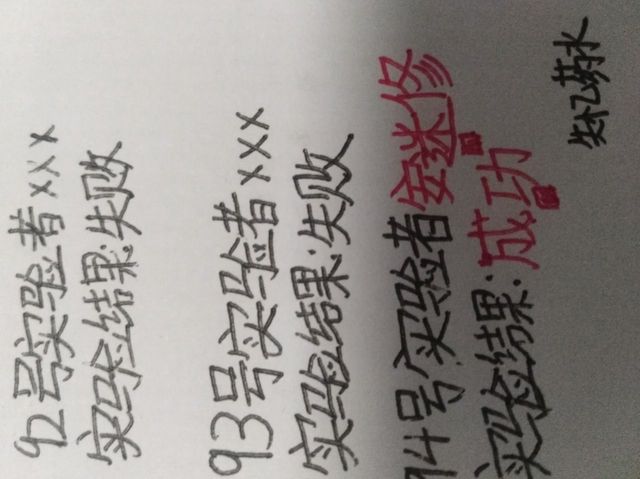 92号实验者xxx
实验结果:失败
93号实验者xxx
实验结果:失败
94号实验者安迷修
实验结果:成功
失忆药水